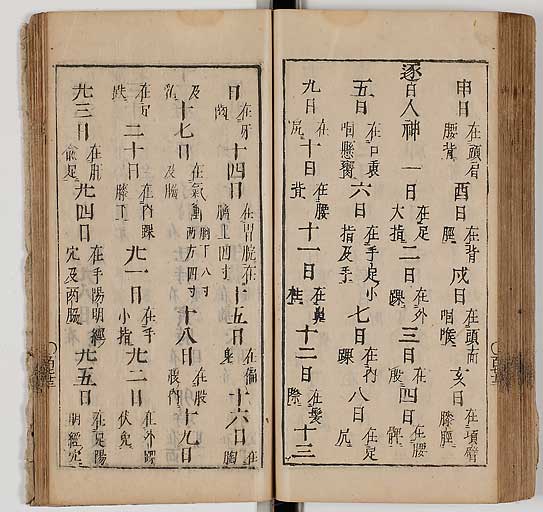 申日在頭眉腰背酉日在背脛戌日在頭面咽喉亥日在項臂膝脛
逐日人神一日在足大指二日在外踝三日在股四日在腰髀
五日在口裏咽懸癰六日在手足小指及手七日在內踝八日在足尻
九日在尻十日在腰背十一日在鼻柱十二日在髮際十三
日在牙齒十四日在胃脘在臍上四寸十五日在徧身十六日在胸
及乳十七日在氣衝臍下八寸兩方四寸及腦十八日在股內十九日
在足趺二十日在內踝膝下廿一日在手小指廿二日在外踝伏兔
廿三日在肝俞足廿四日在手陽明經穴及兩脇廿五日在足陽明經穴